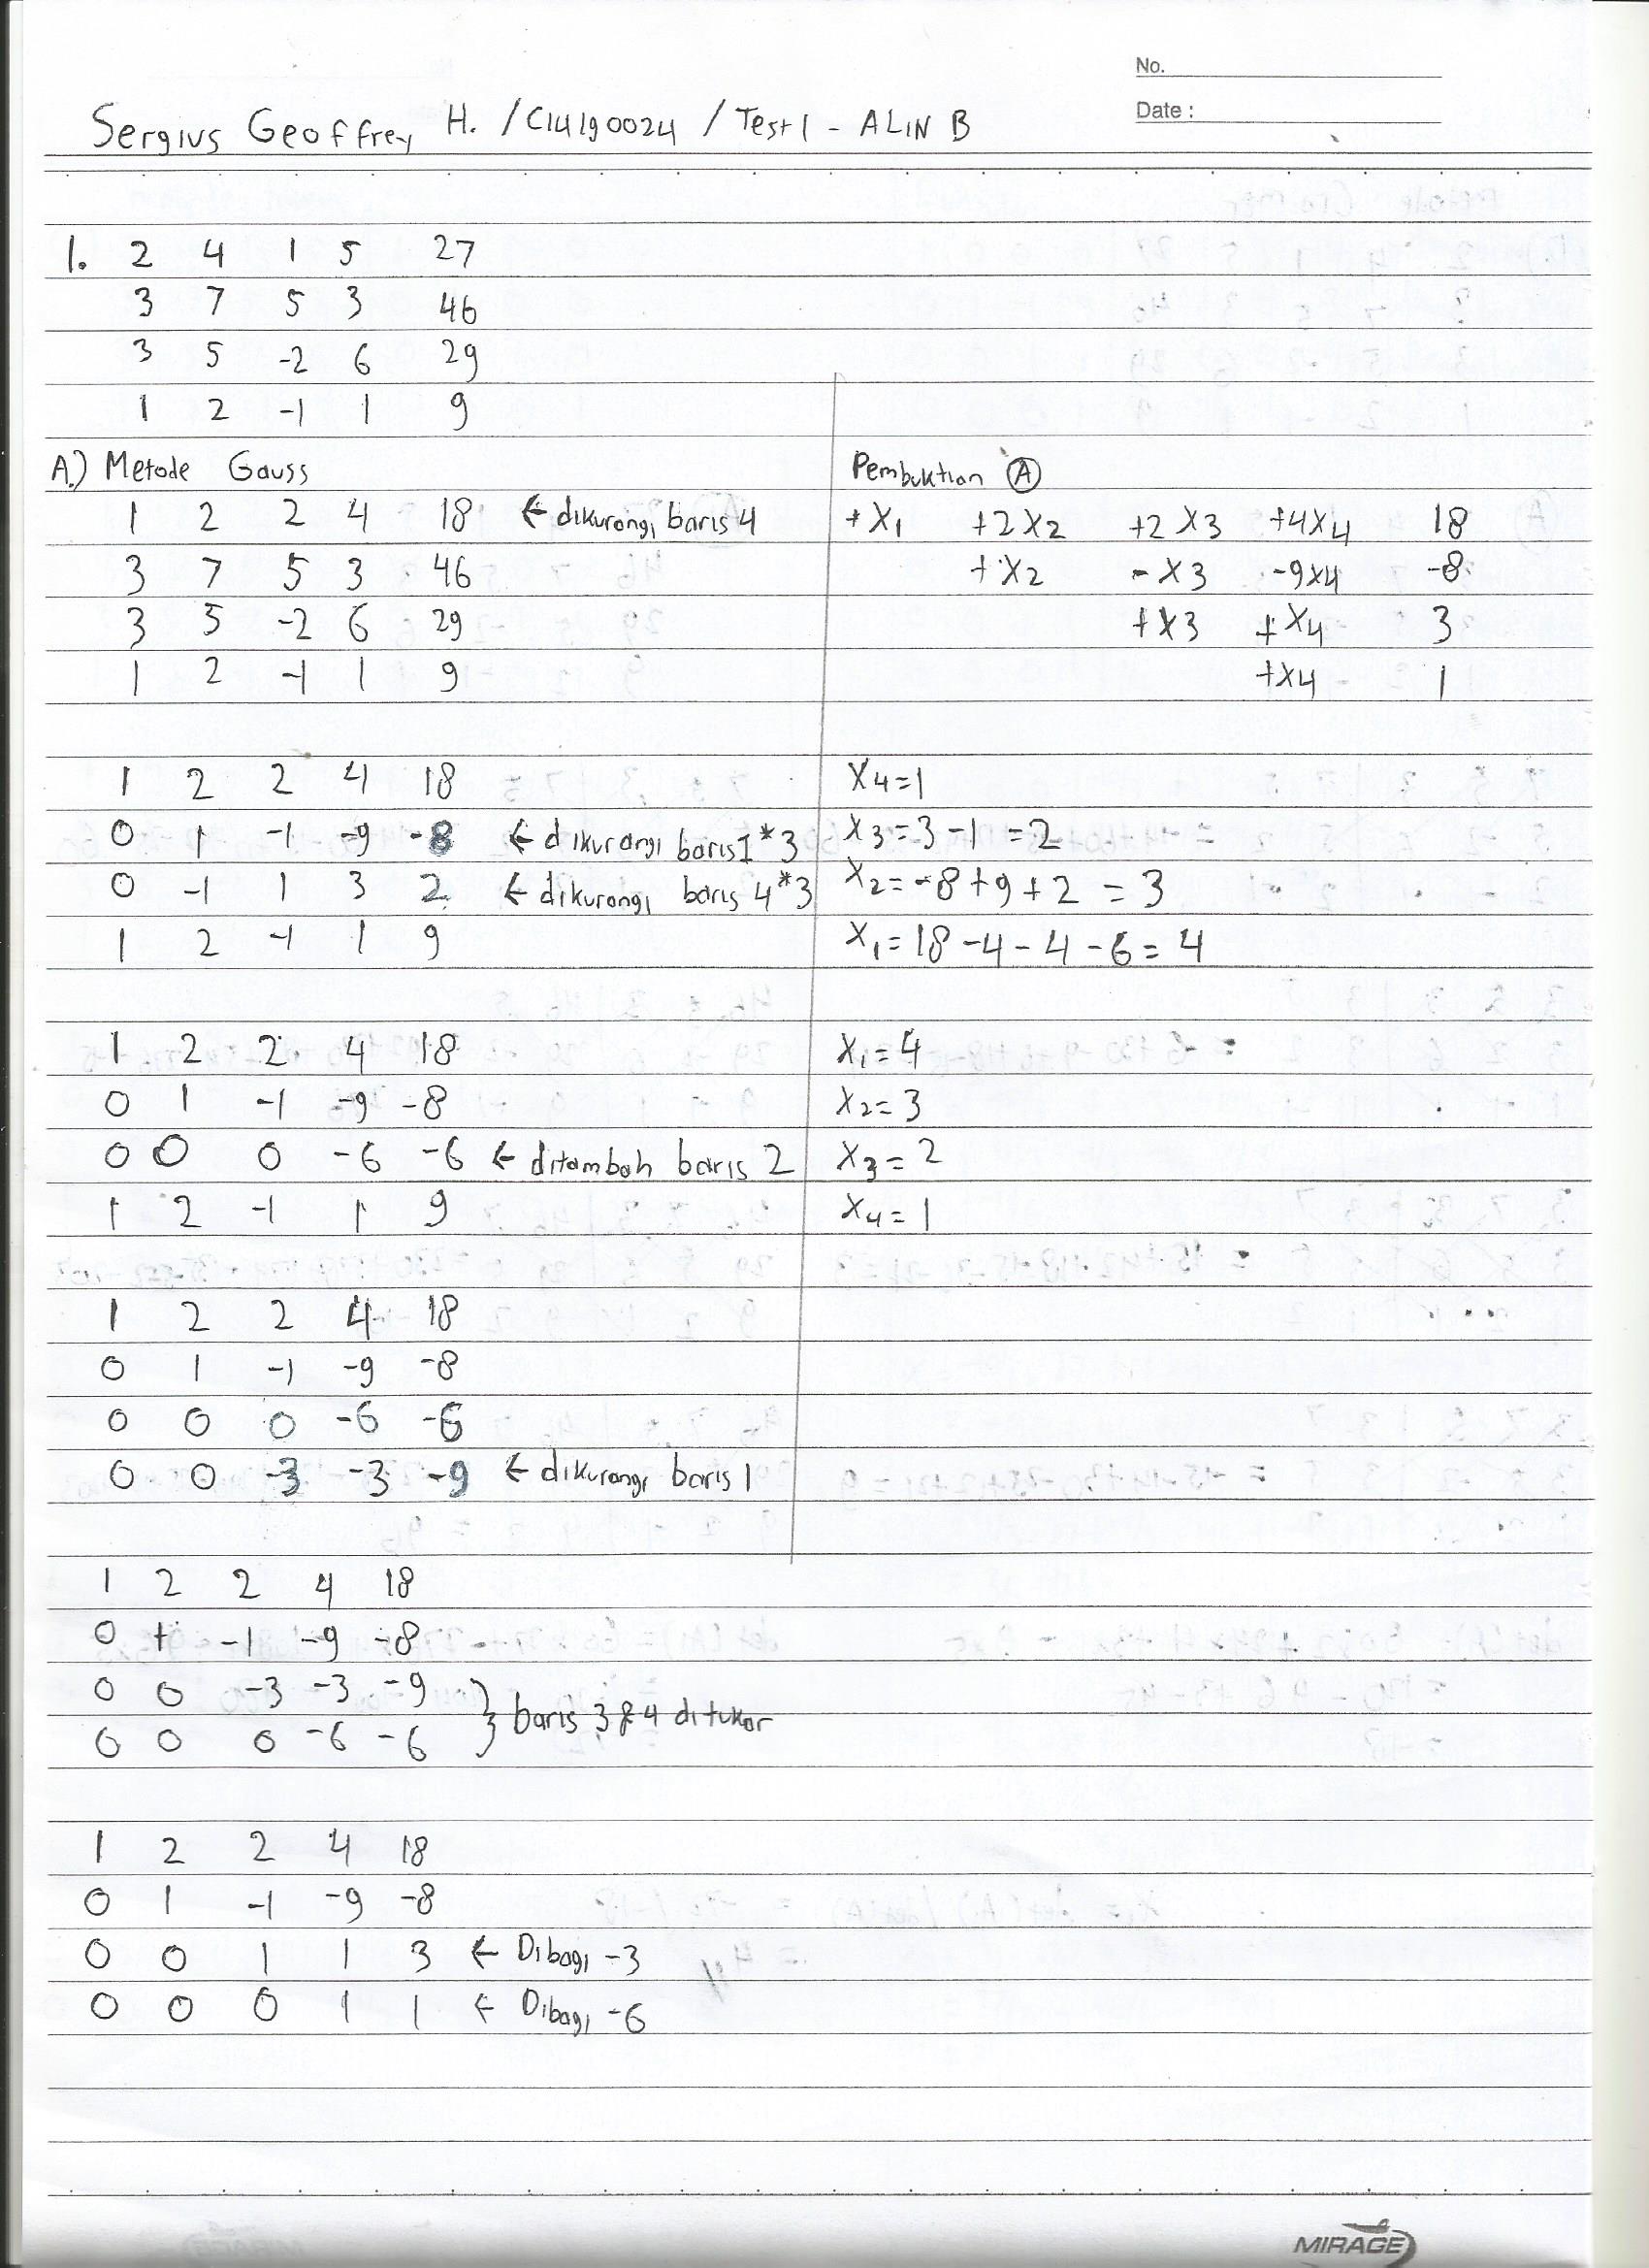 No.
Date :
Sergius Geoffrey H. / C14190024 / Test 1 - ALIN B
1. 2 4 1 5 27
3 7 5 3 46
3 5 -2 6 29
1 2 -1 1 9
A.) Metode Gauss
1 2 2 4 18 ← dikurangi baris 4
3 7 5 3 46
3 5 -2 6 29
1 2 -1 1 9
1 2 2 4 18
0 1 -1 -9 -8 ← dikurangi baris 1*3
0 -1 1 3 2 ← dikurangi baris 4*3
1 2 -1 1 9
1 2 2 4 18
0 1 -1 -9 -8
0 0 0 -6 -6 ← ditambah baris 2
1 2 -1 1 9
1 2 2 4 18
0 1 -1 -9 -8
0 0 0 -6 -6
0 0 -3 -3 -9 ← dikurangi baris 1
1 2 2 4 18
0 1 -1 -9 -8
0 0 -3 -3 -9
0 0 0 -6 -6 } baris 3 & 4 ditukar
1 2 2 4 18
0 1 -1 -9 -8
0 0 1 1 3 ← Dibagi -3
0 0 0 1 1 ← Dibagi -6
Pembuktian Ⓐ
+X1 +2X2 +2X3 +4X4 18
+X2 -X3 -9X4 -8
+X3 +X4 3
+X4 1
X4=1
X3=3-1=2
X2=-8+9+2=3
X1=18-4-4-6=4
X1=4
X2=3
X3=2
X4=1
MIRAGE